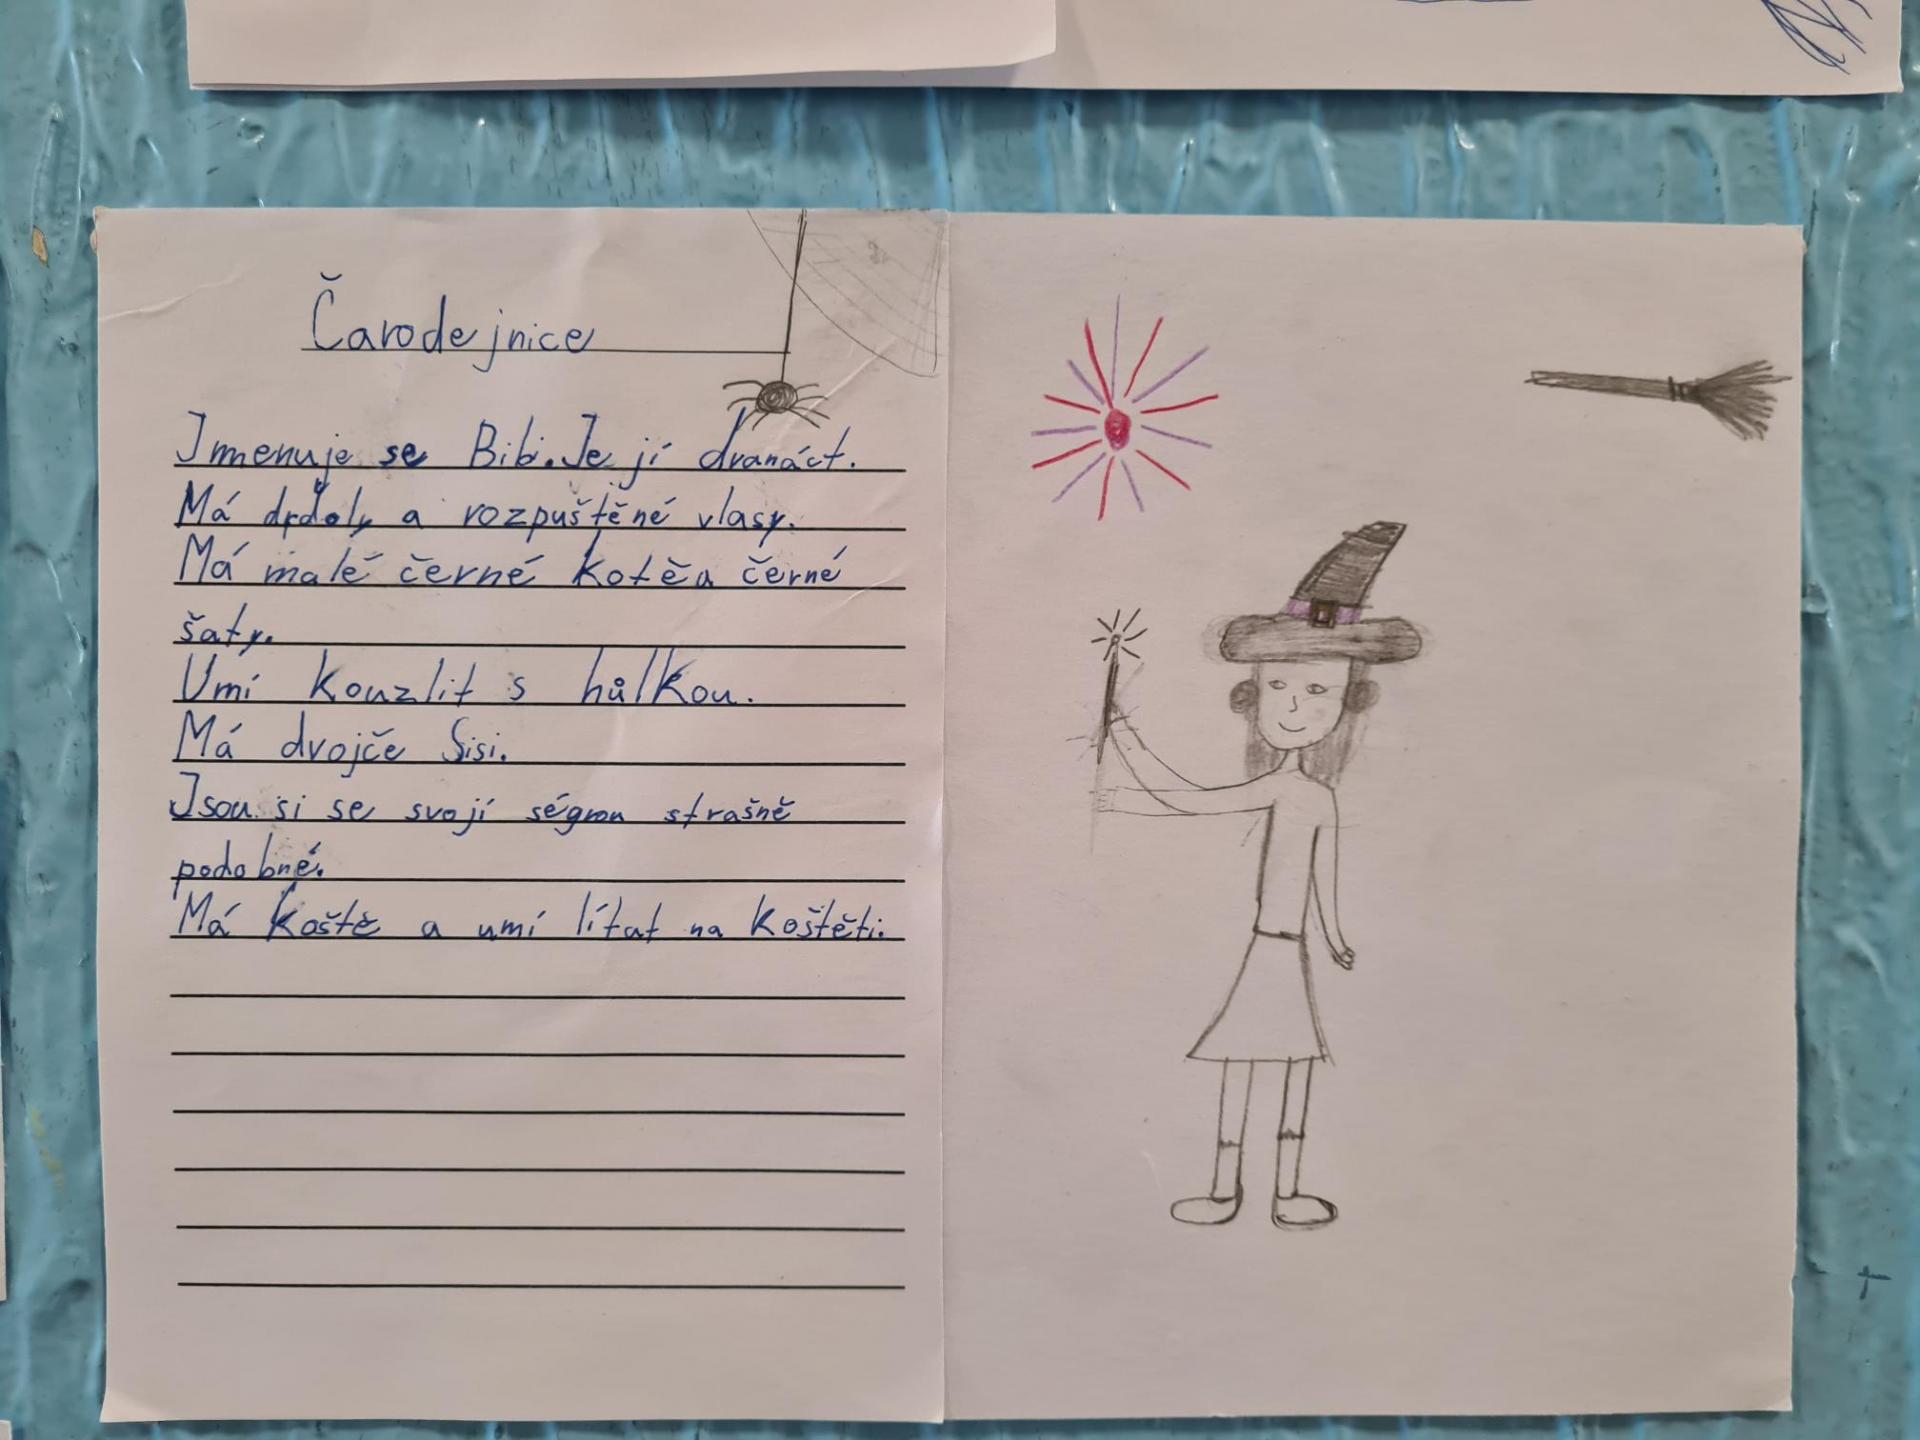 Čarodejnice
Jmenuje se Bibi. Je jí dvanáct.
Má drdoly a rozpuštěné vlasy.
Má malé černé kotě a černé
šaty.
Umí kouzlit s hůlkou.
Má dvojče Sisi.
Jsou si se svojí ségrou strašně
podobné.
Má koště a umí lítat na koštěti.